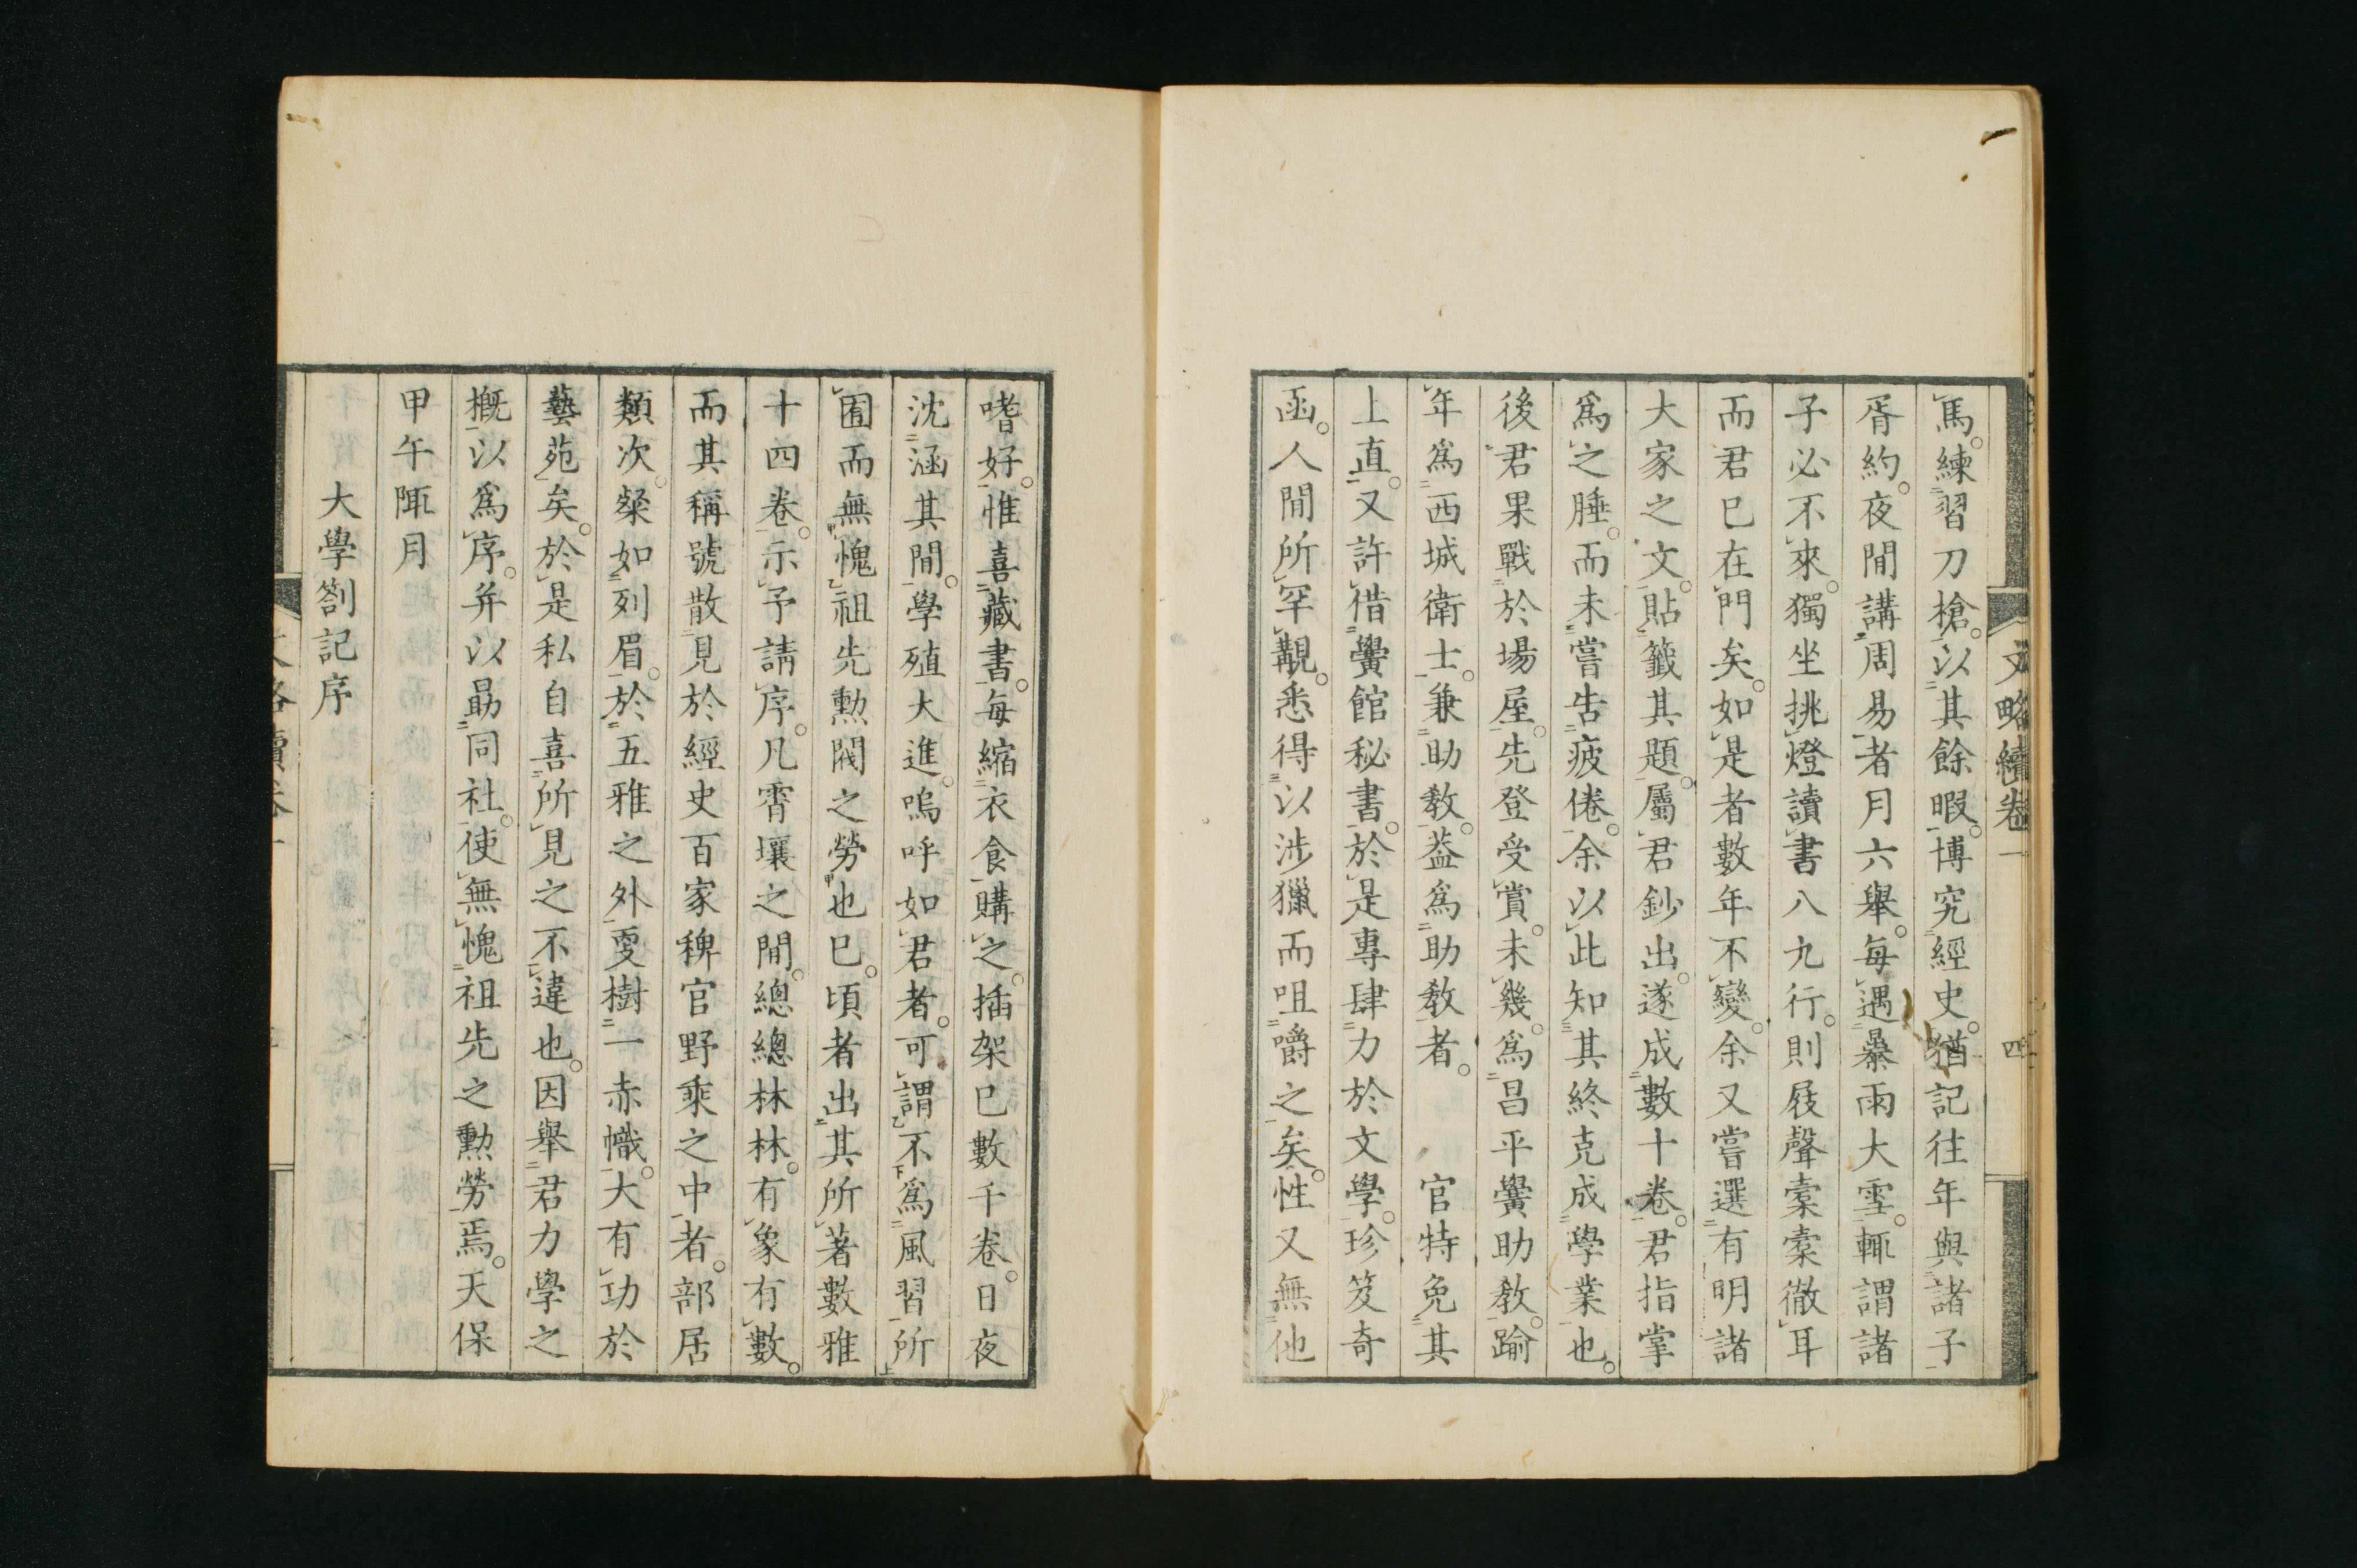 文略續卷一
四
馬。練習刀槍。以其餘暇。博究經史。猶記往年與諸子
胥約。夜間講周易者月六舉。每遇暴雨大雪。輒謂諸
子必不來。獨坐挑燈讀書八九行。則屐聲橐橐徹耳
而君已在門矣。如是者數年不變。余又嘗選有明諸
大家之文。貼籤其題。屬君鈔出。遂成數十卷。君指掌
爲之腄。而未嘗告疲倦。余以此知其終克成學業也。
後君果戰於場屋。先登受賞。未幾。爲昌平黌助教。踰
年爲西城衛士。兼助教。蓋爲助教者。 官特免其
上直。又許借黌館秘書。於是專肆力於文學。珍笈奇
函。人間所罕覩。悉得以涉獵而咀嚼之矣。性又無他
嗜好。惟喜藏書。每縮衣食購之。插架已數千卷。日夜
沈涵其間。學殖大進。嗚呼如君者。可謂不爲風習所
囿而無愧祖先勳閥之勞也已。頃者出其所著數雅
十四卷。示予請序。凡霄壤之間。總總林林。有象有數。
而其稱號散見於經史百家稗官野乘之中者。部居
類次。粲如列眉。於五雅之外。更樹一赤幟。大有功於
藝苑矣。於是私自喜所見之不違也。因舉君力學之
概以爲序。并以勗同社。使無愧祖先之勳勞焉。天保
甲午陬月
大學劄記序